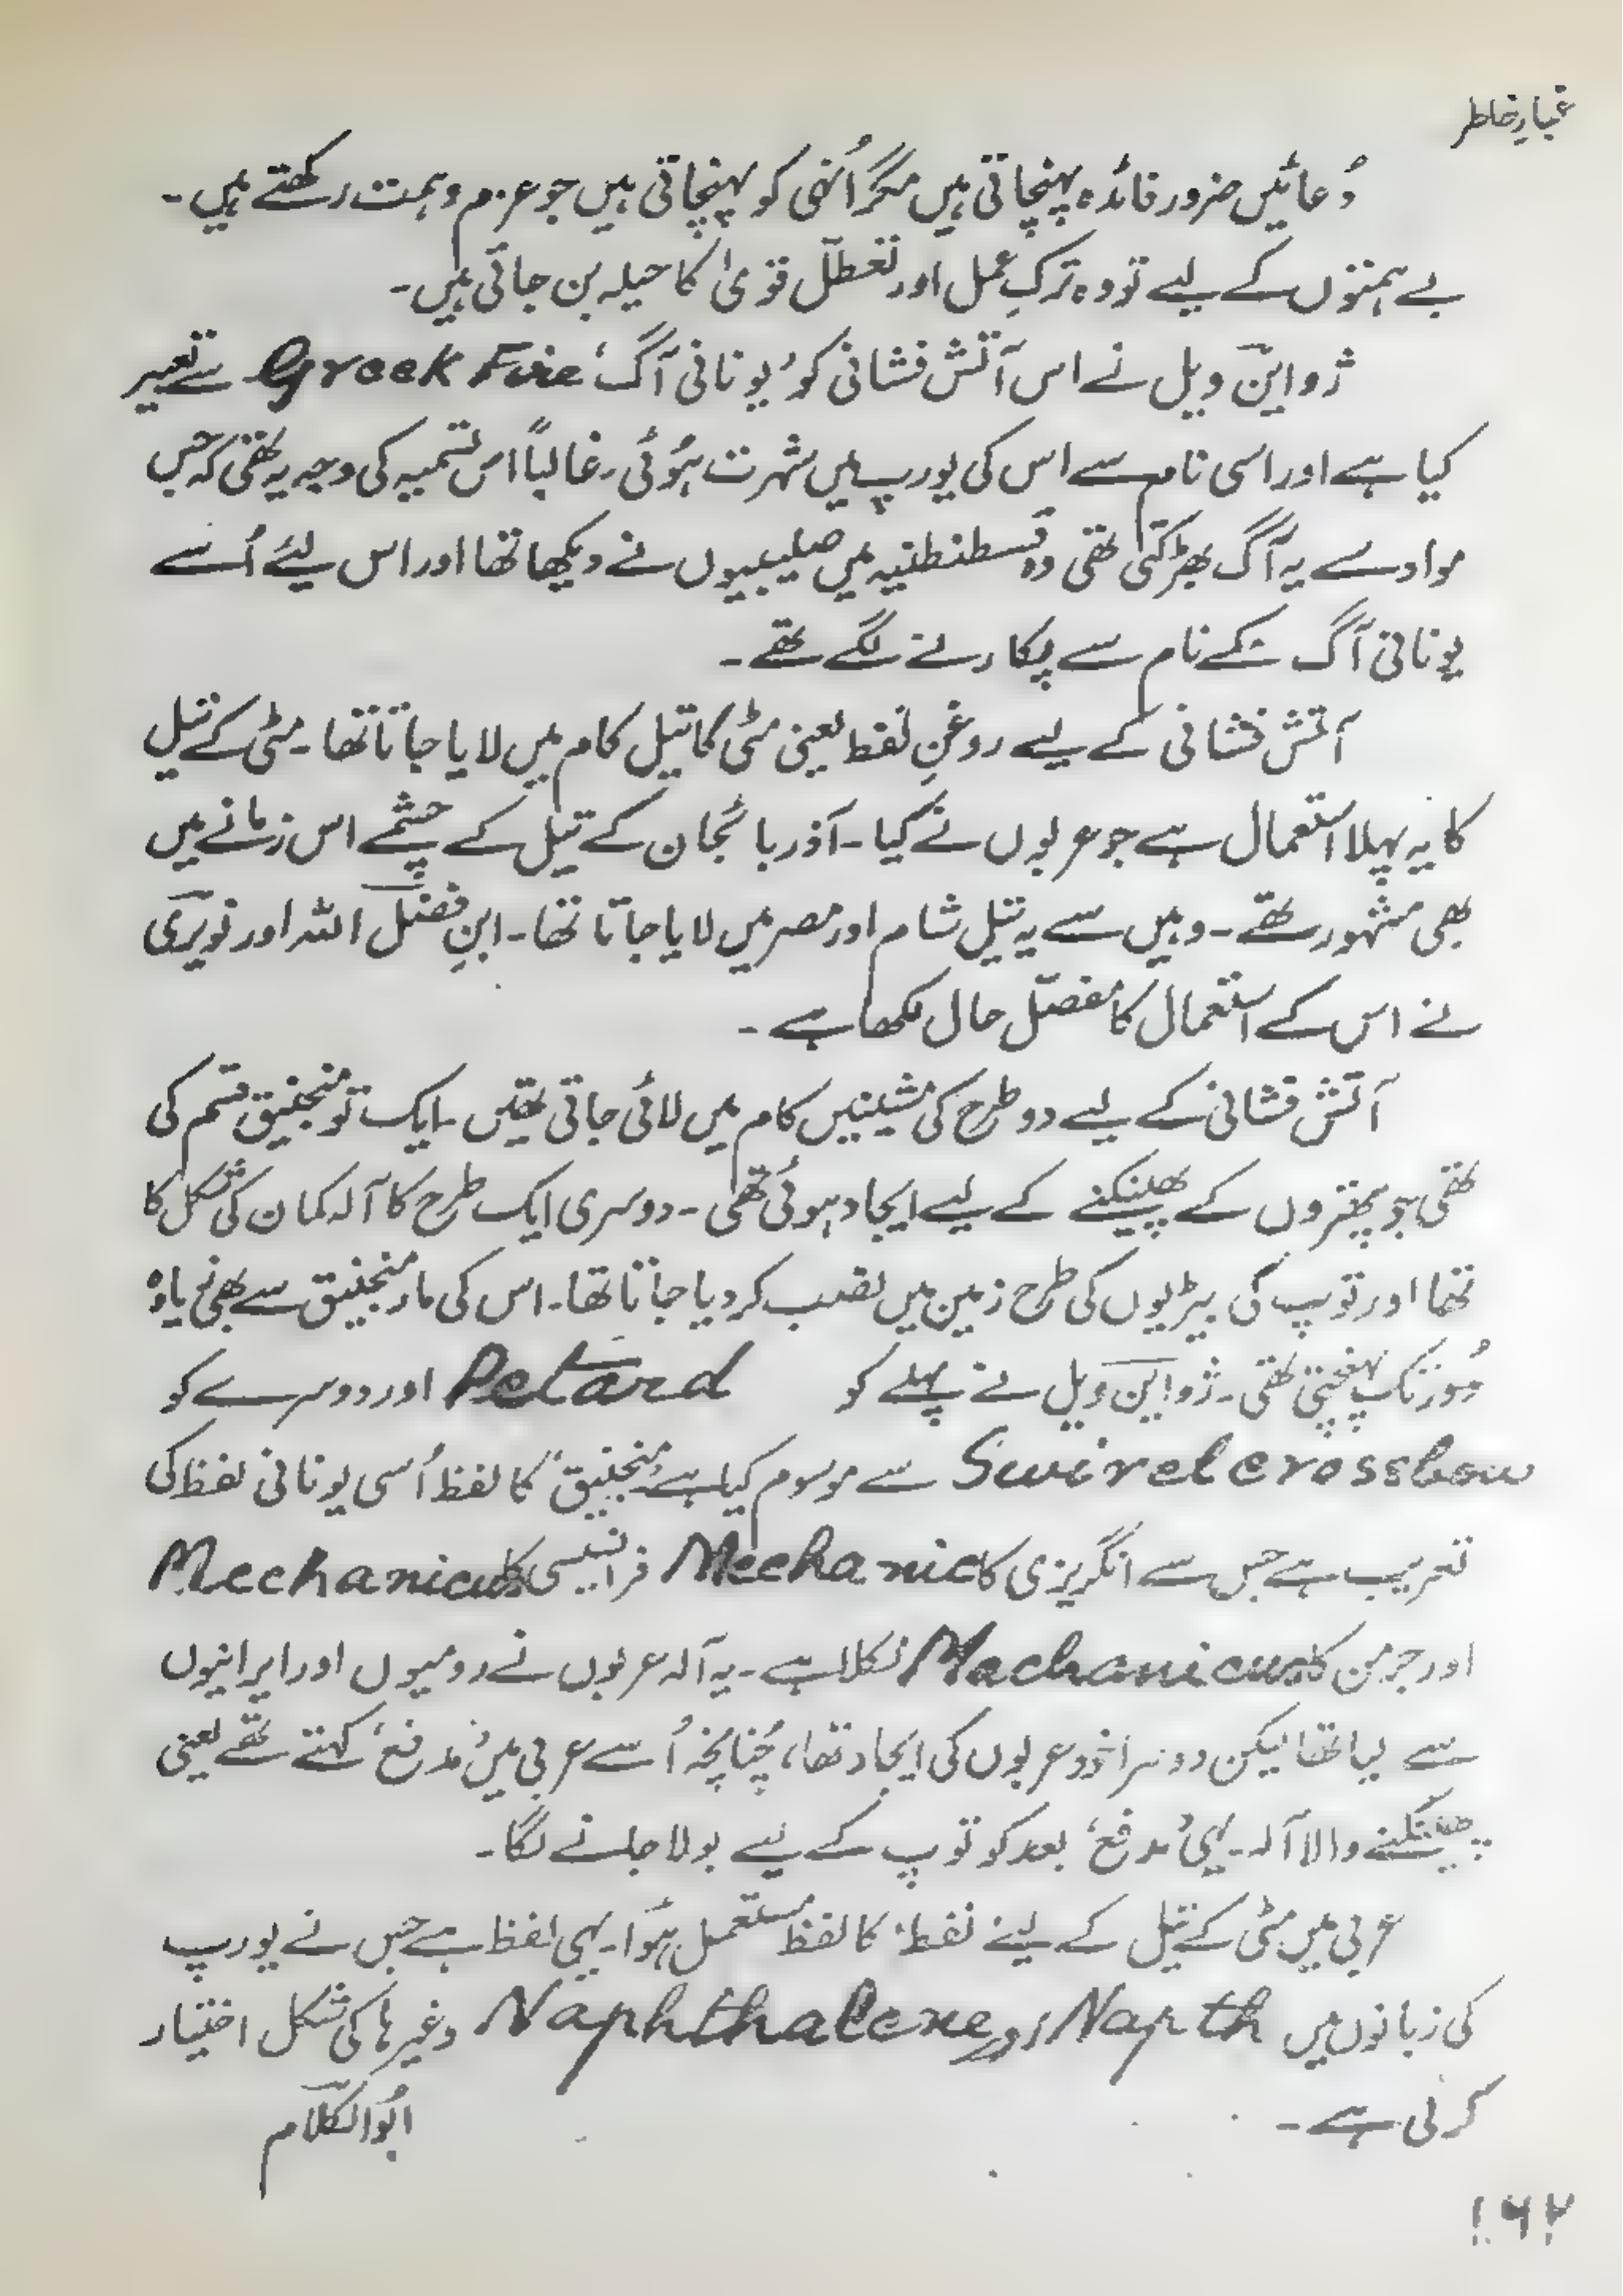 غبارِ خاطر
دُعائیں ضرور فائدہ پہنچاتی ہیں مگر اُنہی کو پہنچاتی ہیں جو عزم و ہمت رکھتے ہیں۔
بے ہمتوں کے لیے تو وہ ترکِ عمل اور تعطلّ قویٰ کا حیلہ بن جاتی ہیں۔
ژو این ویل نے اس آتش فشانی کو ’یونانی آگ‘ Greek Fire سے تعبیر
کیا ہے اور اسی نام سے اس کی یورپ میں شہرت ہُوئی۔ غالباً اس تسمیہ کی وجہ یہ تھی کہ جس
مواد سے یہ آگ بھڑکتی تھی وہ قسطنطنیہ میں صلیبیوں نے دیکھا تھا اور اس لیے اُسے
یونانی آگ کے نام سے پکارنے لگے تھے۔
آتش فشانی کے لیے روغنِ نفط یعنی مٹی کا تیل کام میں لایا جاتا تھا۔ مٹی کے تیل
کا یہ پہلا استعمال ہے جو عربوں نے کیا۔ آذربائجان کے تیل کے چشمے اس زمانے میں
بھی مشہور تھے۔ وہیں سے یہ تیل شام اور مصر میں لایا جاتا تھا۔ ابنِ فضل اللہ اور نویری
نے اس کے استعمال کا مفصّل حال لکھا ہے۔
آتش فشانی کے لیے دو طرح کی مشینیں کام میں لائی جاتی تھیں۔ ایک تو منجنیق قسم کی
تھی جو پتھروں کے پھینکنے کے لیے ایجاد ہوئی تھی۔ دوسری ایک طرح کا آلہ کمان کی شکل کا
تھا اور توپ کی بیڑیوں کی طرح زمین میں نصب کر دیا جاتا تھا۔ اس کی مار منجنیق سے بھی زیادہ
دُور تک پہنچتی تھی۔ ژو این ویل نے پہلے کو Petard اور دوسرے کو
Swivel crossbow سے موسوم کیا ہے ’منجنیق‘ کا لفظ اُسی یونانی لفظ کی
تعریب ہے جس سے انگریزی کا Mechanic فرانسیسی کا Mechanicus
اور جرمن کا Mechanicus نکلا ہے۔ یہ آلہ عربوں نے رومیوں اور ایرانیوں
سے لیا تھا لیکن دوسرا خود عربوں کی ایجاد تھا، چُنانچہ اُسے عربی میں ’مدفع‘ کہتے تھے یعنی
پھینکنے والا آلہ۔ یہی ’مدفع‘ بعد کو توپ کے لیے بولا جانے لگا۔
عربی میں مٹی کے تیل کے لیے ’نفط‘ کا لفظ مستعمل ہُوا۔ یہی لفظ ہے جس نے یورپ
کی زبانوں میں Napth اور Naphthalene وغیرہا کی شکل اختیار
کر لی ہے۔
ابُوالکلام
۱۶۲